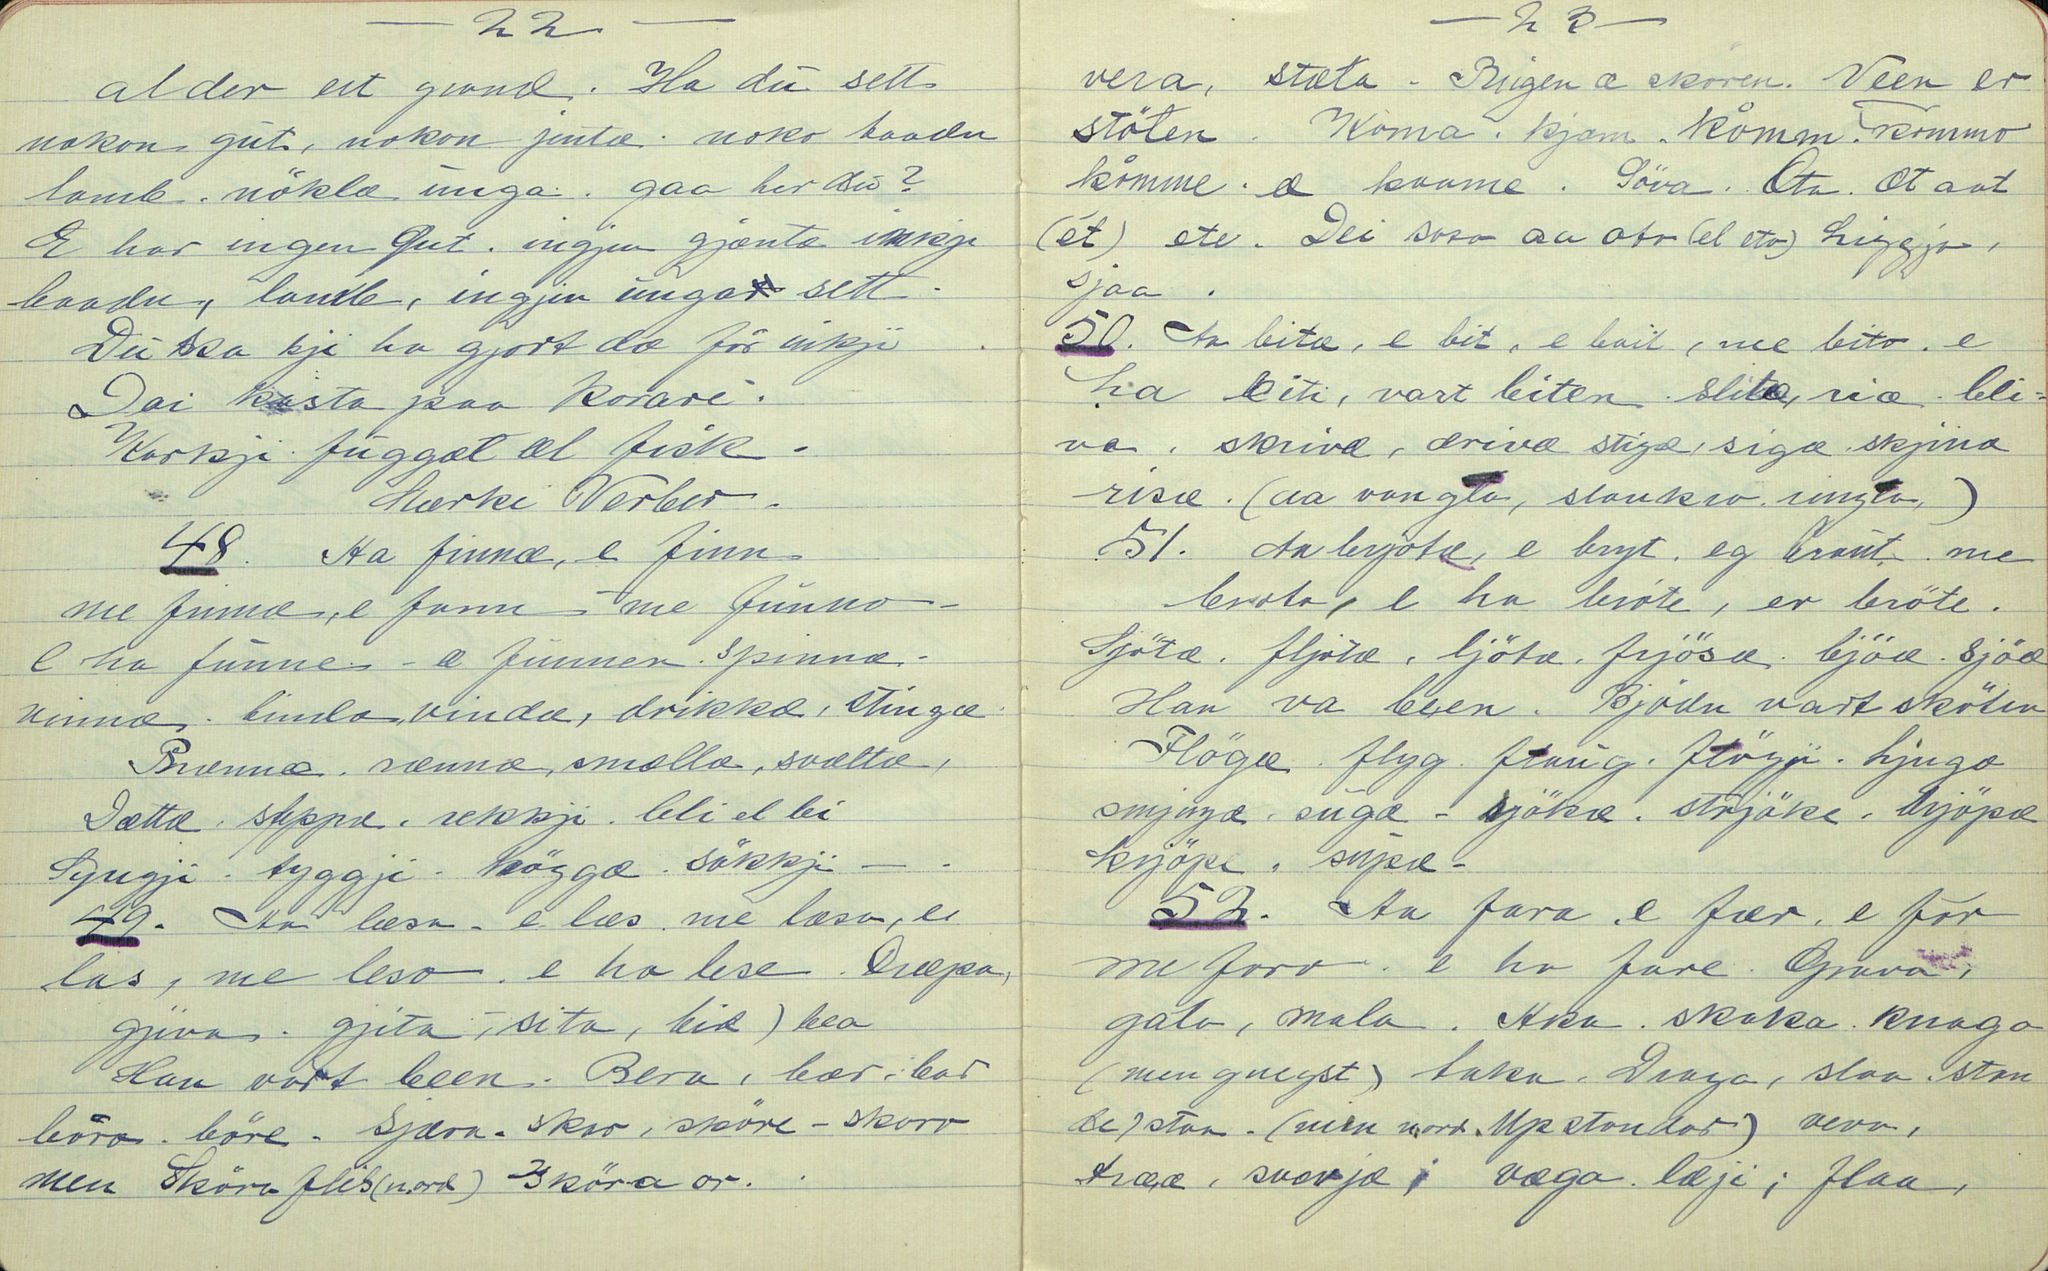 — 22 —
al der eit grand. Ha du sett
nokon gut, nokon jinta. noko baadn
lamb. nökla unga. gaa her du?
E har ingen Gut. ingjen gjænta inkji
baadn, lamb, ingjen unga sett.
Du ska kji ha gjort dæ för inkji
Dai kasta paa korare.
Korkji fuggæl æl fisk.
Stærke Verber.
48. Aa finnæ, e finn
me finnæ, e fann – me funno –
e ha funne – æ funnen. spinnæ –
vinnæ. binda, vindæ, drikkæ, stingæ
Brænnæ. rænnæ, smællæ, svæltæ,
Dættæ. sleppæ. rekkji. bli el bi
Syngji. tyggji. höggæ. sökkji —.
49. Aa læsa – e læs. me læsa, e
las, me leso. e ha lese. Dræpa,
gjiva. gjita –, sita, biæ) bea
Han vart been. Bera, bær. bar
böro. böre. Sjæra – skar, sköre – skoro
men Sköra flis (nord) Sköra or.
— 23 —
vera, stæla – Ringen æ skoren. Veen er
stölen. Koma. kjæm. kåmm. kommo
kåmme. æ kaame. Söva. Eta. æt aat
(ét) ete. Dei soso aa oto (el eto) Liggja,
sjaa.
50. Aa bitæ, e bit, e bait, me bito. e
ha biti, vart biten. slitæ, riæ. bli-
va. skrivæ, drivæ stigæ, sigæ. skjina
risæ. (aa vangla, slaukra. ringla,)
51. Aa brjotæ, e bryt. eg braut. me
broto, e ha bröte, er bröte.
Sjötæ. fljotæ, ljötæ. frjösæ. bjöæ. sjöæ
Han va been. Bjödn vart sköten
Flögæ. flyg. flaug. flögji. Ljuga
smjugæ. sugæ – rjökæ. strjöke. drjöpæ
krjöpe. supæ –
52. Aa fara. e fær. e för
me foro. e ha fare. Grava,
gala, mala. Aka. skaka. knaga
(men gnegst) taka. Draga, slaa. stan
de) staa. (min nord. Upstandar) vera,
træa, sværjæ; væga. læji; flaa,